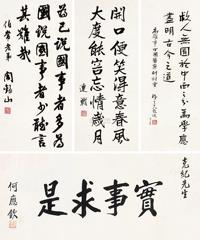 故人無囿於中西之分為學應
盡明古今之道
開口便笑得意春風
大度能容忘情歲月
連戰
為己說國事者多為
國說國事者少聽言
其難哉
閻錫山
克紀先生
實事求是
何應欽